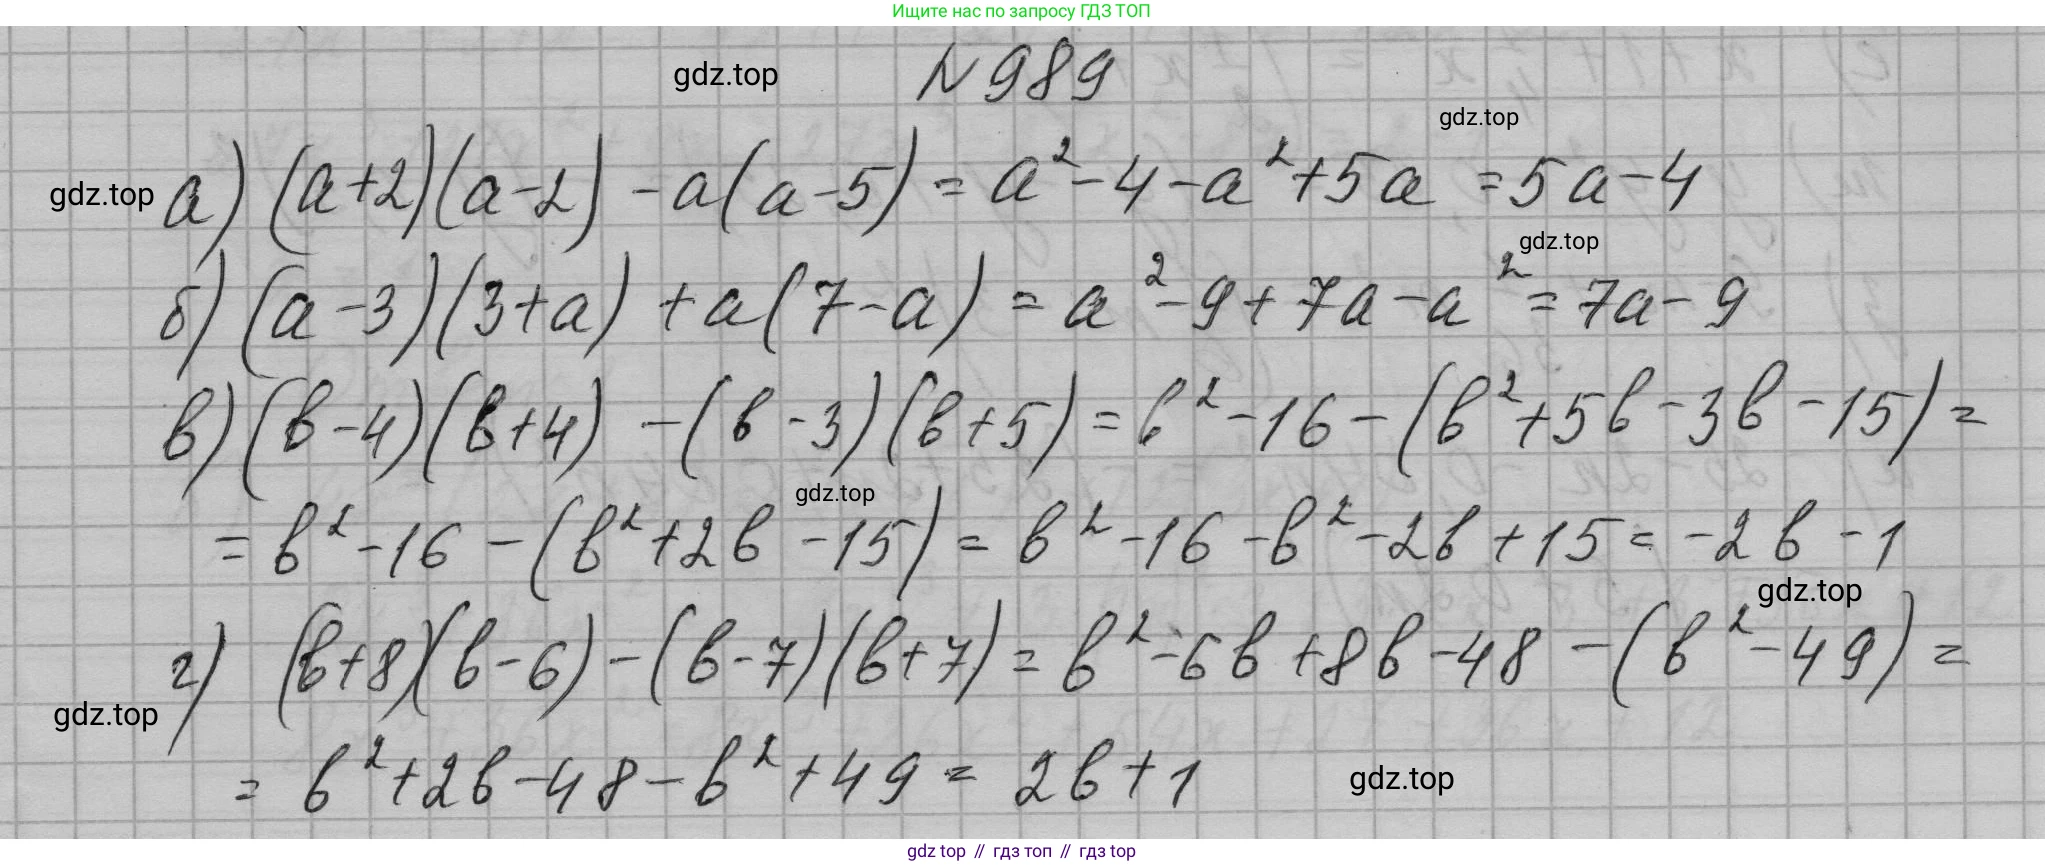 Ищите нас по запросу ГДЗ ТОП
gdz.top
N 989
gdz.top
gdz.top
а) (a+2)(a-2) - a(a-5) = a² - 4 - a² + 5a = 5a - 4
gdz.top
б) (a-3)(3+a) + a(7-a) = a² - 9 + 7a - a² = 7a - 9
в) (b-4)(b+4) - (b-3)(b+5) = b² - 16 - (b² + 5b - 3b - 15) =
gdz.top
= b² - 16 - (b² + 2b - 15) = b² - 16 - b² - 2b + 15 = -2b - 1
gdz.top
г) (b+8)(b-6) - (b-7)(b+7) = b² - 6b + 8b - 48 - (b² - 49) =
gdz.top
= b² + 2b - 48 - b² + 49 = 2b + 1
gdz.top
gdz top // гдз топ // гдз top